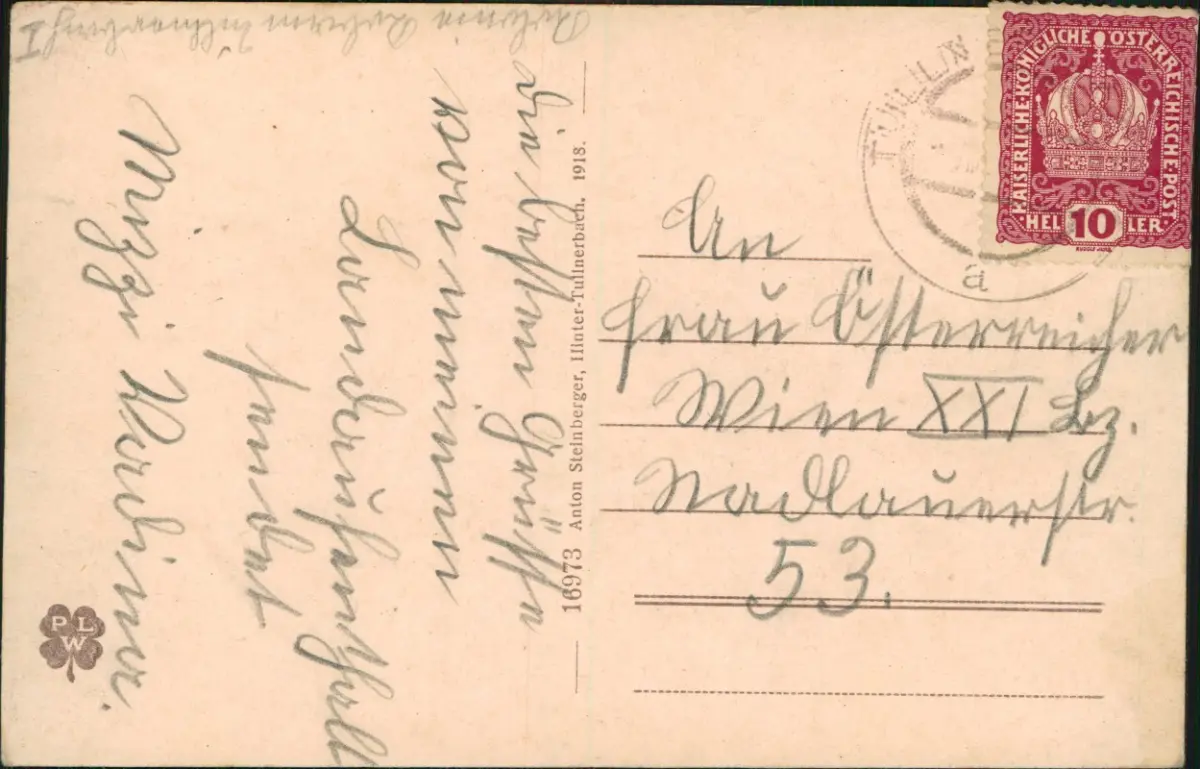 die besten Grüße
von meinem
Landaufenthalt
sendet
Mizzi Kodimer.
16973 Anton Steinberger, Hinter-Tullnerbach, 1918.
PLW
KAISERLICHE·KÖNIGLICHE ÖSTERREICHISCHE·POST
HELLER 10
TULLN
a
An
Frau Österreicher
Wien XXI Bz.
Nadlauerstr.
53.